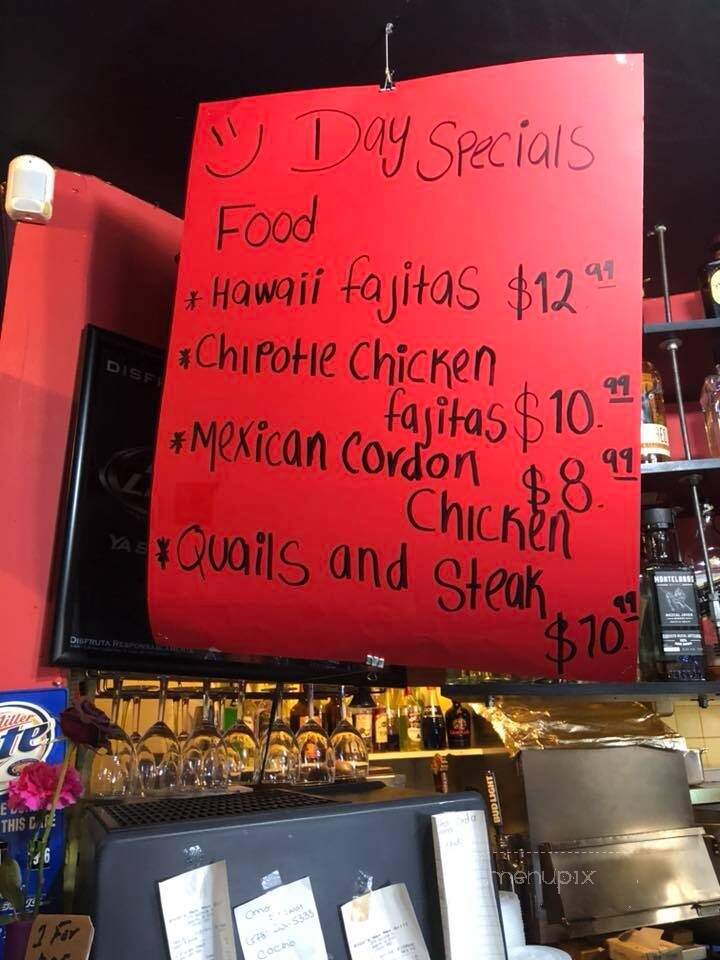 Day Specials
Food
* Hawaii fajitas $12.99
* Chipotle Chicken
fajitas $10.99
* Mexican Cordon $8.99
Chicken
* Quails and Steak
$10.99
DISFRUTA
YA
MONTELOBOS
MEZCAL JOVEN
BUD LIGHT
Miller
THIS
1 For
menupix